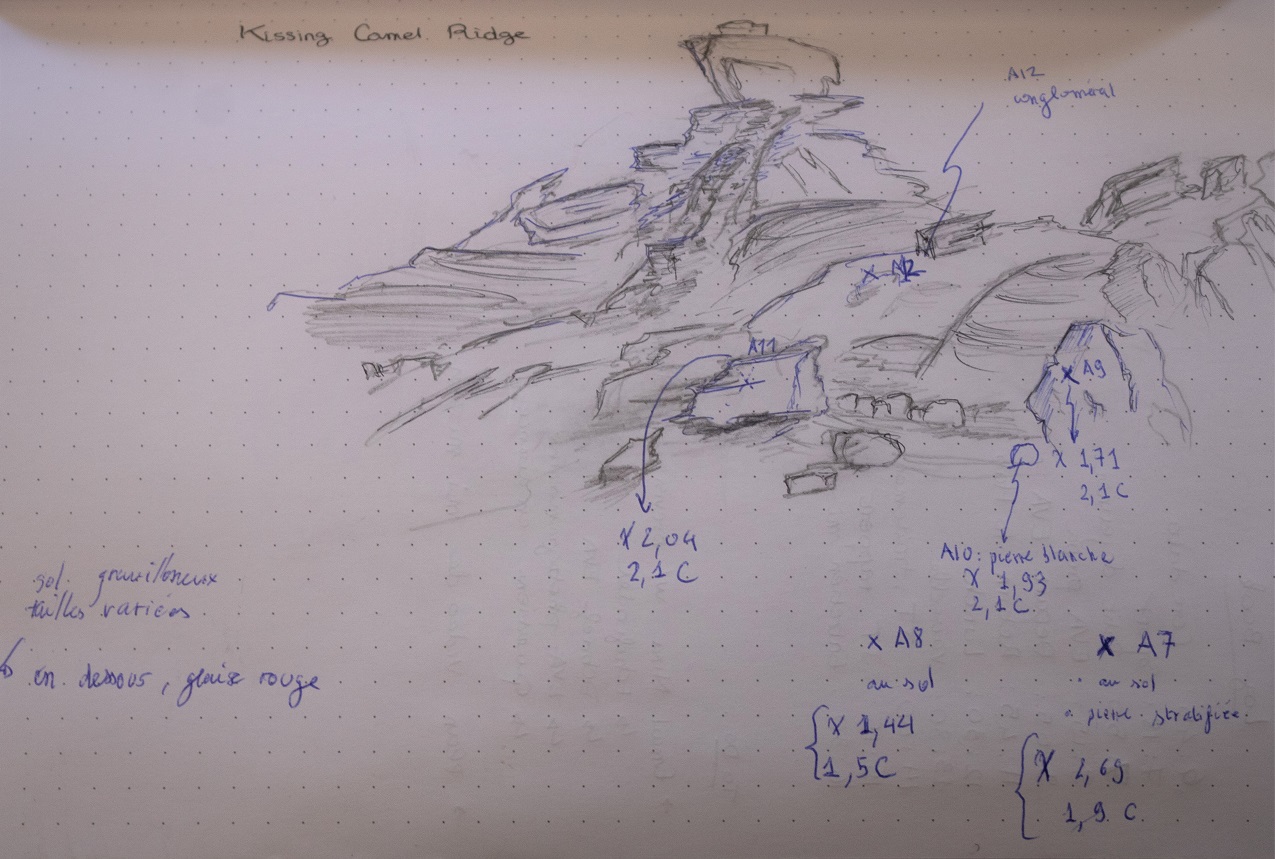 Kissing Camel Ridge
A12
conglomérat
x A12
A11
x A9
X 1,71
2,1 C
X 2,04
2,1 C
A10 : pierre blanche
X 1,93
2,1 C
sol gravilloneux
tailles variées
en dessous, glaise rouge
x A8
au sol
X 1,44
1,5 C
x A7
au sol
pierre stratifiée
X 2,69
1,9 C